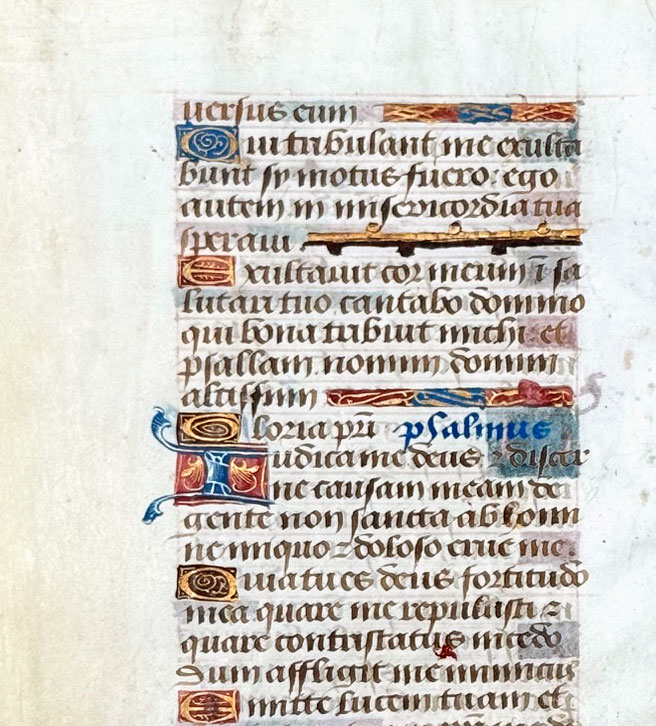 uersus eum
Qui tribulant me exulta
bunt si motus fuero: ego
autem in misericordia tua
speraui
Exultauit cor meum ī sa
lutari tuo cantabo domino
qui bona tribuit michi et
psallam nomini domini
altissimi
Gloria pr̄i psalmus
Iudica me deus ⁊ discer
ne causam meam de
gente non sancta ab homi
ne iniquo ⁊ doloso erue me.
Quia tu es deus fortitudo
mea quare me repulisti ⁊
quare contristatus incedo
dum affligit me inimicus
Emitte lucem tuam et